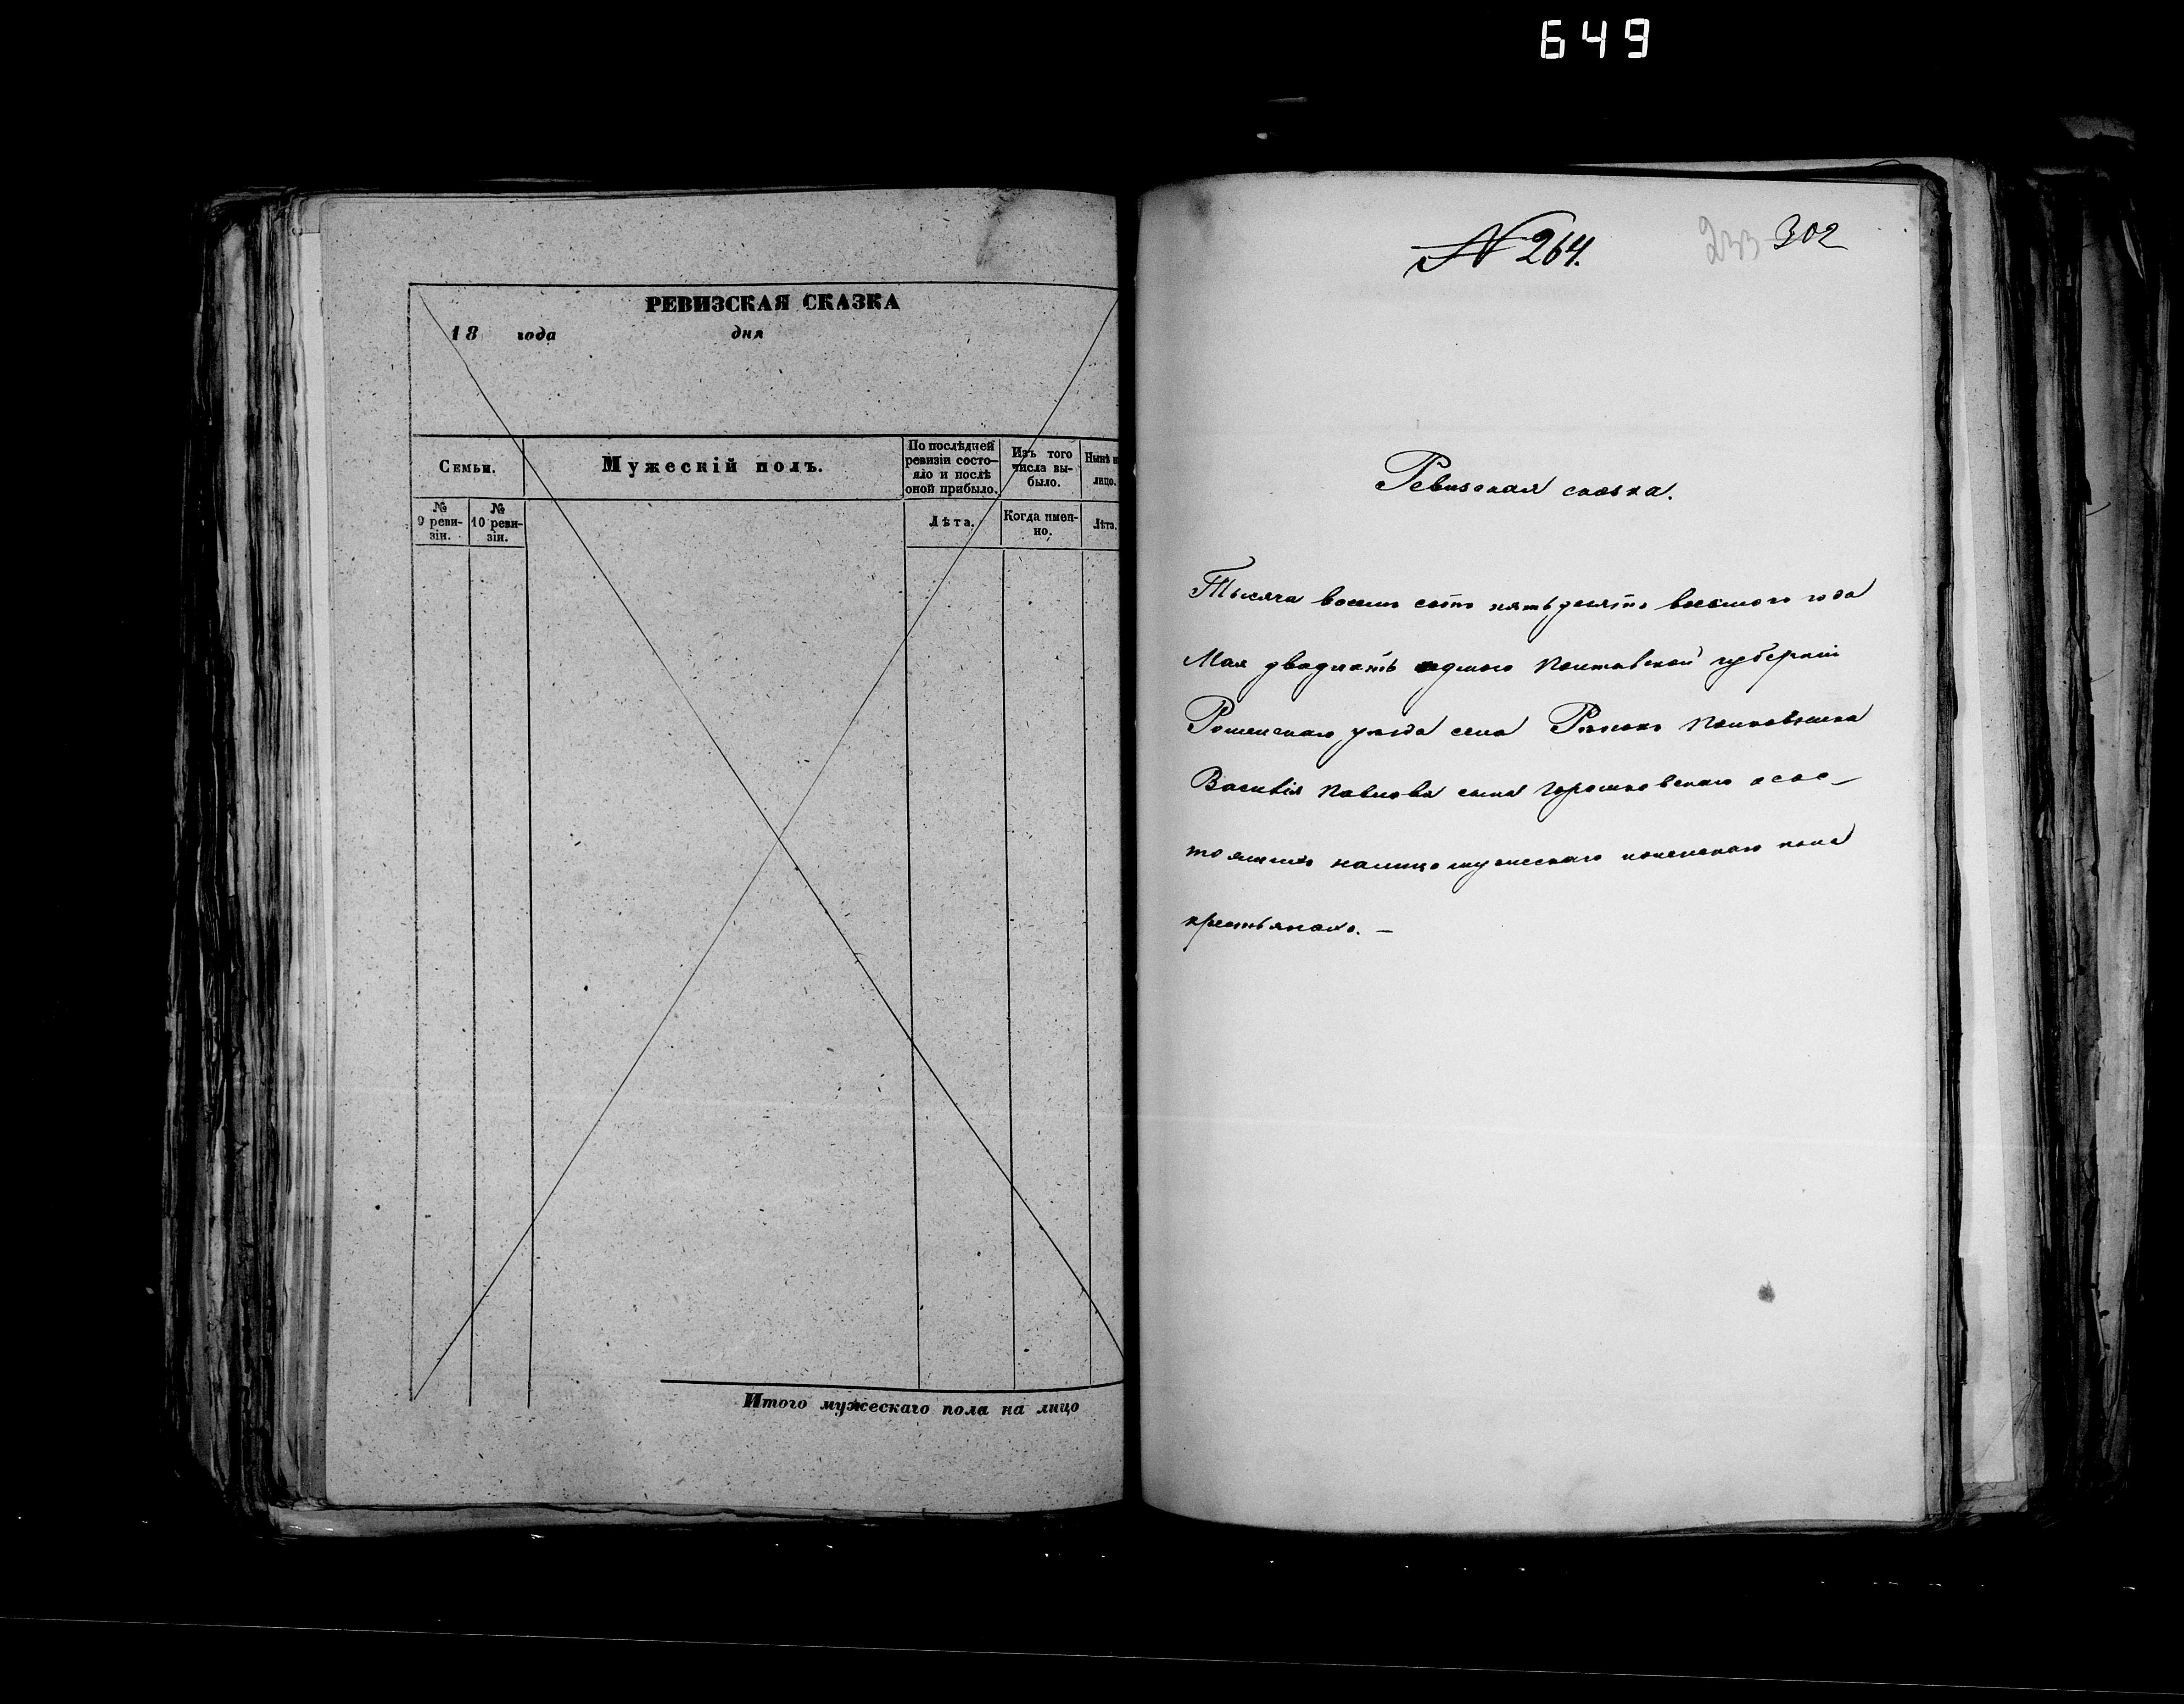 649
РЕВИЗСКАЯ СКАЗКА
18 года дня
Семьи.
Мужескій полъ.
По послѣдней
ревизіи состо-
яло и послѣ
оной прибыло.
Изъ того
числа вы-
было.
Нынѣ н
лицо.
№
9 реви-
зіи.
№
10 реви-
зіи.
Лѣта.
Когда имен-
но.
Лѣта.
Итого мужескаго пола на лицо
N 264.
233 302
Ревизская сказка.
Тысяча восемь сотъ пятьдесятъ восьмого года
Мая двадцать одного Полтавской губерніи
Роменскаго уѣзда села Полковника
Василія Павлова сына Горошковскаго о сос-
тоящихъ налицо мужескаго и женскаго пола
крестьянахъ. —